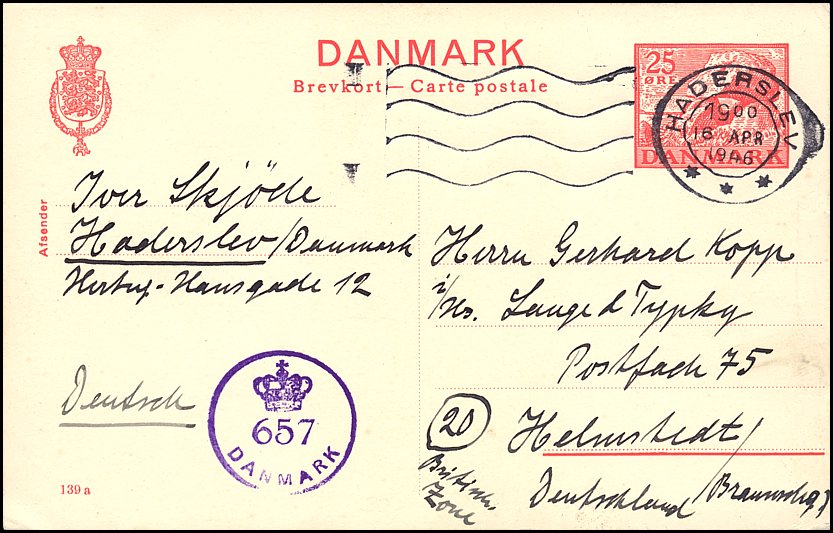 DANMARK
Brevkort — Carte postale
25
ØRE
DANMARK
HADERSLEV
19 00
16 APR
1946
Afsender
Iver Skjöde
Haderslev/Danmark
Hertug-Hansgade 12
Deutsch
657
DANMARK
139 a
Herrn Gerhard Kopp
i/Hs. Lange & Typky
Postfach 75
20
Helmstedt/
Braunschg.
Deutschland
British.
Zone